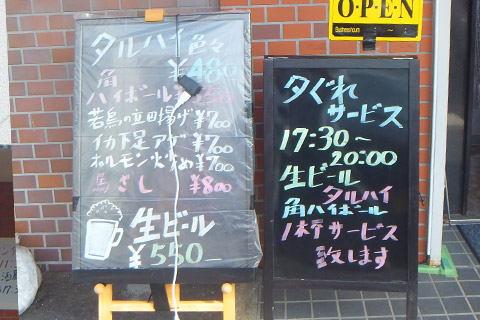 OPEN
タルハイ 色々
¥480
角
ハイボール
若鳥の立田揚げ ¥700
イカ下足アゲ ¥700
ホルモン炒め ¥700
馬ざし ¥800
生ビール
¥550-
夕ぐれ
サービス
17:30~
20:00
生ビール
タルハイ
角ハイボール
1杯サービス
致します